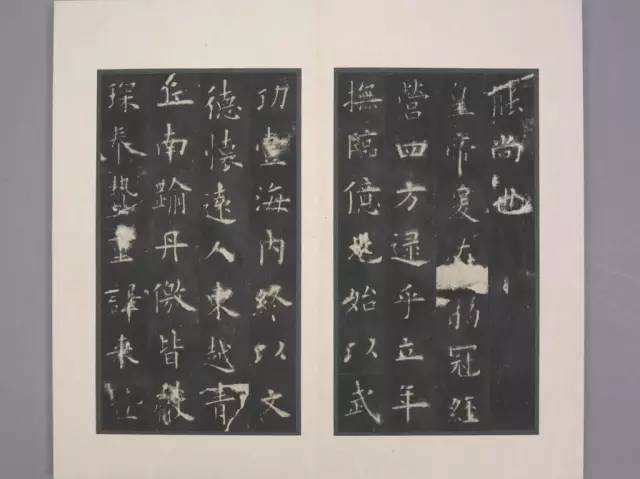 能尚也
皇帝爰在弱冠經
營四方逮乎立年
撫臨億兆始以武
功壹海内終以文
德懷遠人東越青
丘南踰丹徼皆獻
琛奉贄重譯来王